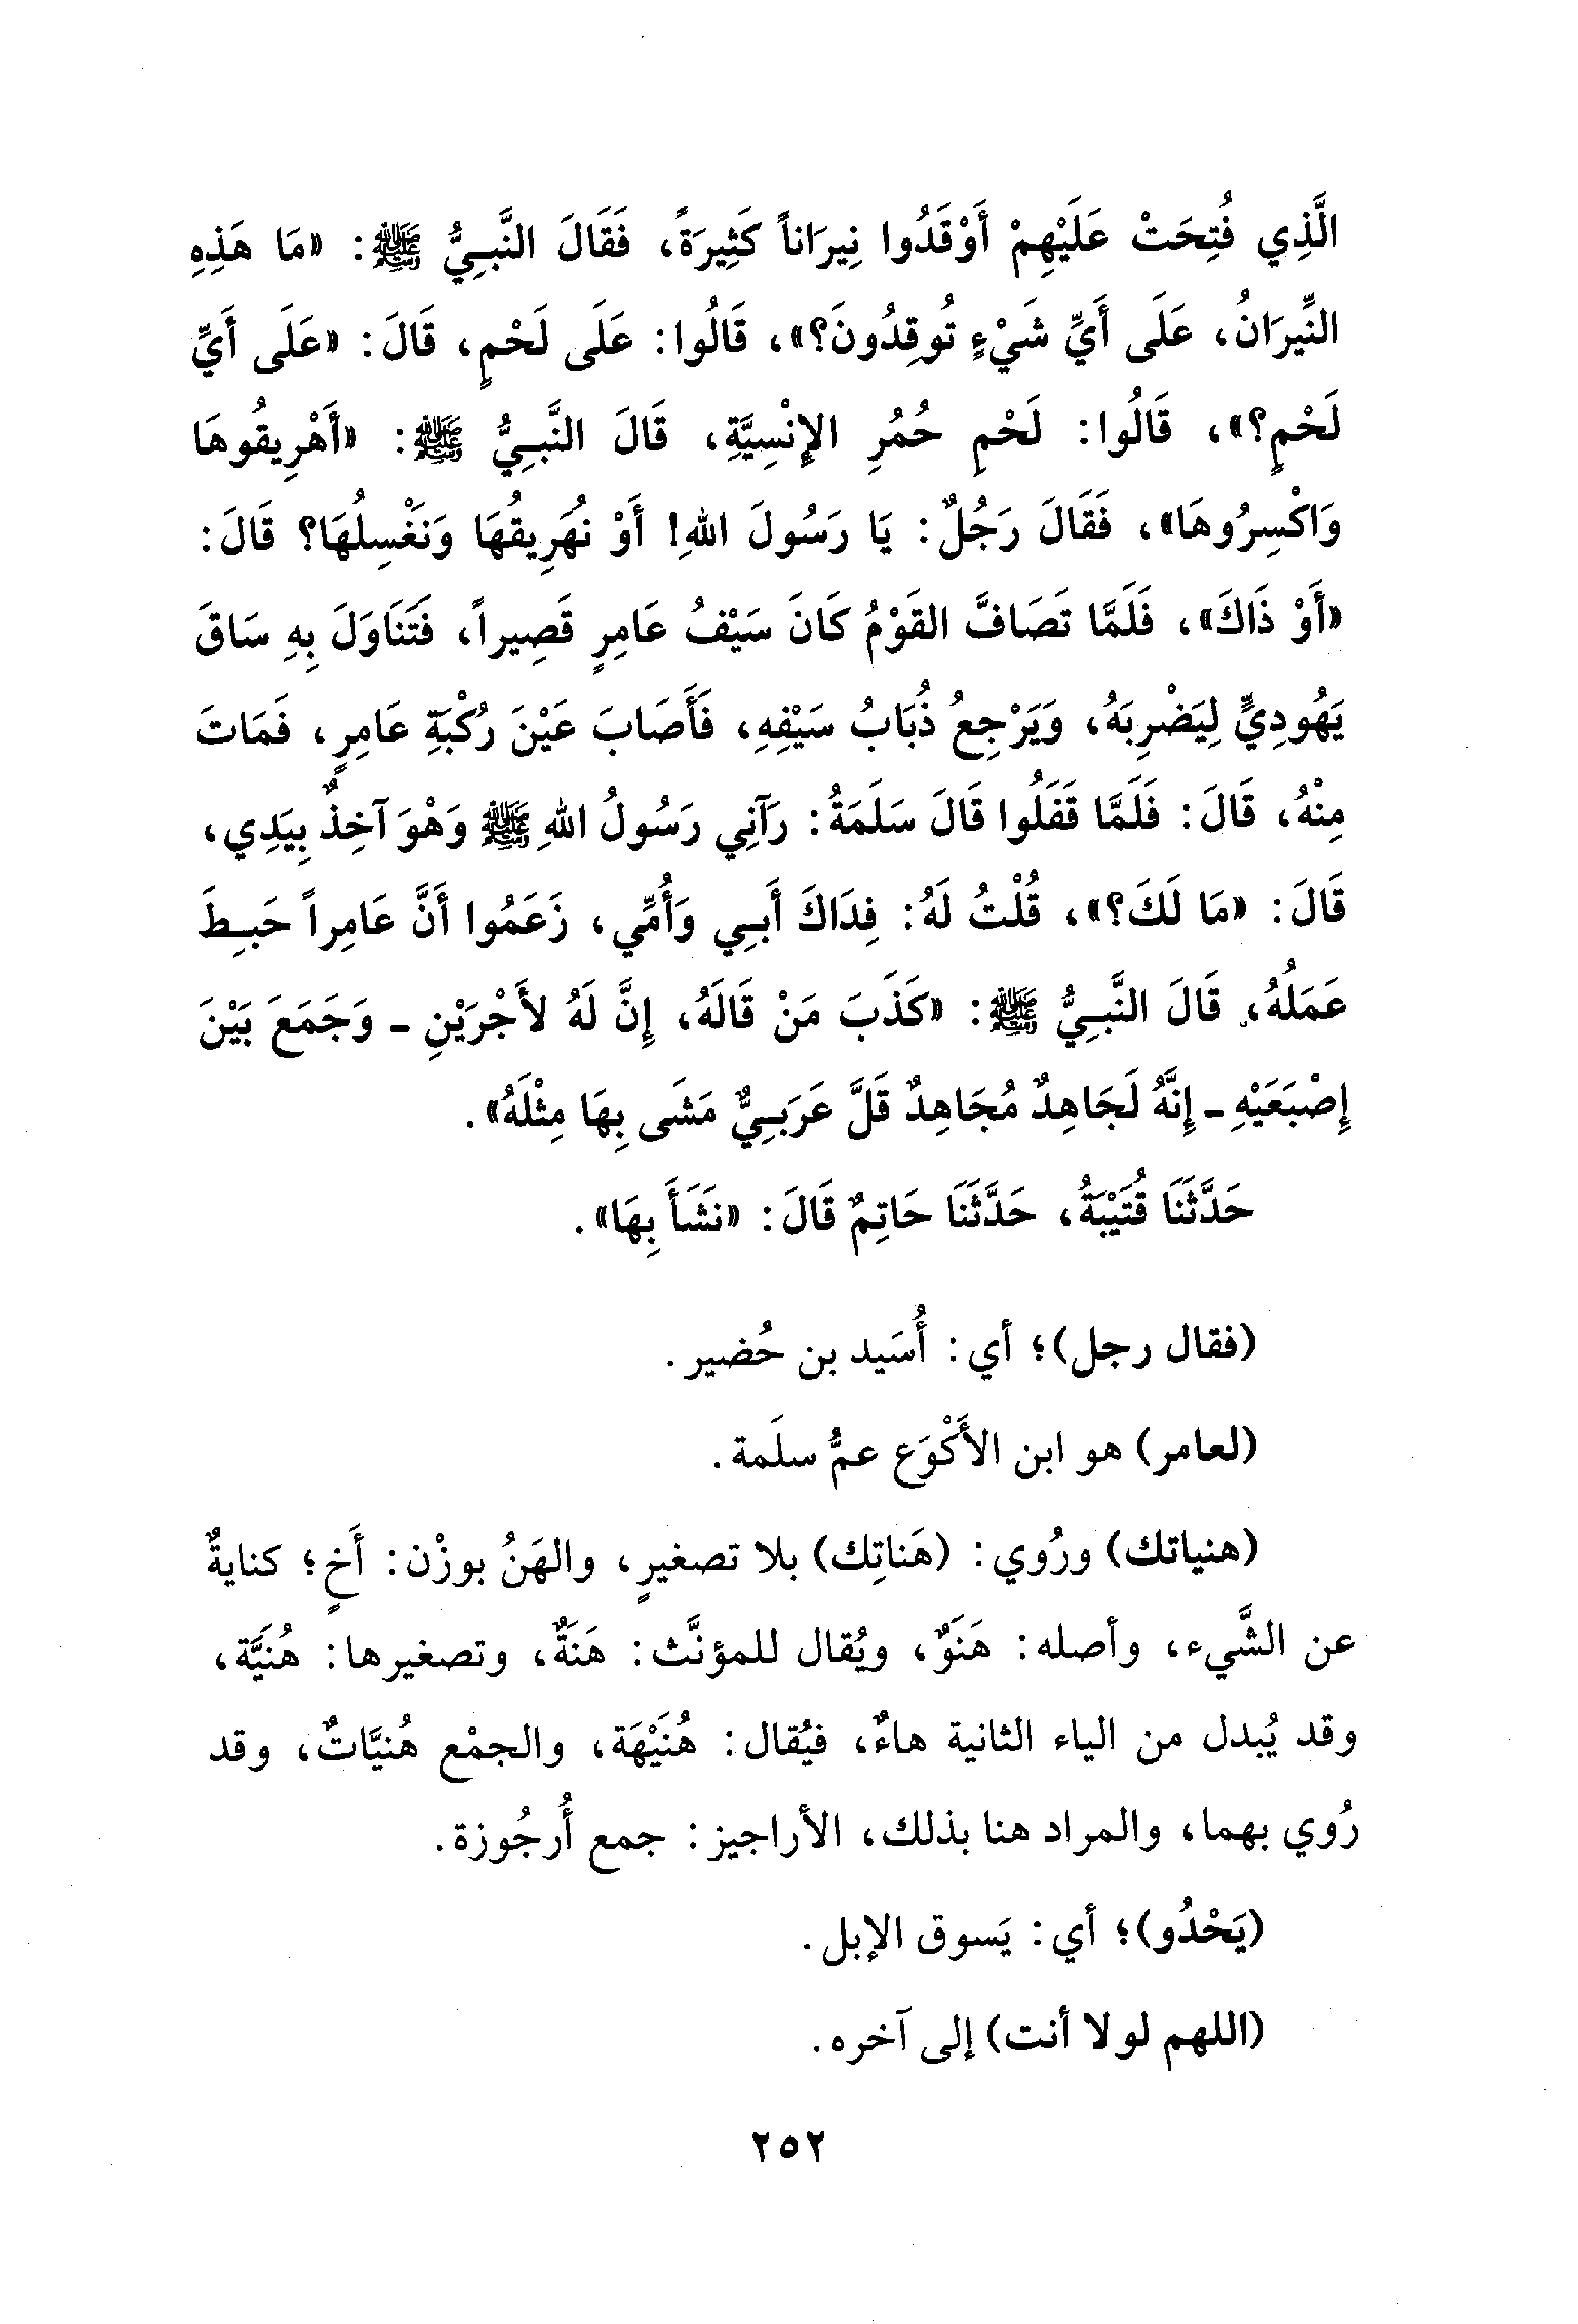 الَّذِي فُتِحَتْ عَلَيْهِمْ أَوْقَدُوا نِيرَاناً كَثِيرَةً، فَقَالَ النَّبِيُّ ﷺ: «مَا هَذِهِ
النِّيرَانُ، عَلَى أَيِّ شَيْءٍ تُوقِدُونَ؟»، قَالُوا: عَلَى لَحْمٍ، قَالَ: «عَلَى أَيِّ
لَحْمٍ؟»، قَالُوا: لَحْمِ حُمُرِ الإِنْسِيَّةِ، قَالَ النَّبِيُّ ﷺ: «أَهْرِيقُوهَا
وَاكْسِرُوهَا»، فَقَالَ رَجُلٌ: يَا رَسُولَ اللهِ! أَوْ نُهَرِيقُهَا وَنَغْسِلُهَا؟ قَالَ:
«أَوْ ذَاكَ»، فَلَمَّا تَصَافَّ القَوْمُ كَانَ سَيْفُ عَامِرٍ قَصِيراً، فَتَنَاوَلَ بِهِ سَاقَ
يَهُودِيٍّ لِيَضْرِبَهُ، وَيَرْجِعُ ذُبَابُ سَيْفِهِ، فَأَصَابَ عَيْنَ رُكْبَةِ عَامِرٍ، فَمَاتَ
مِنْهُ، قَالَ: فَلَمَّا قَفَلُوا قَالَ سَلَمَةُ: رَآنِي رَسُولُ اللهِ ﷺ وَهْوَ آخِذٌ بِيَدِي،
قَالَ: «مَا لَكَ؟»، قُلْتُ لَهُ: فِدَاكَ أَبِي وَأُمِّي، زَعَمُوا أَنَّ عَامِراً حَبِطَ
عَمَلُهُ، قَالَ النَّبِيُّ ﷺ: «كَذَبَ مَنْ قَالَهُ، إِنَّ لَهُ لأَجْرَيْنِ ـ وَجَمَعَ بَيْنَ
إِصْبَعَيْهِ ـ إِنَّهُ لَجَاهِدٌ مُجَاهِدٌ قَلَّ عَرَبِيٌّ مَشَى بِهَا مِثْلَهُ».
حَدَّثَنَا قُتَيْبَةُ، حَدَّثَنَا حَاتِمٌ قَالَ: «نَشَأَ بِهَا».
(فقال رجل)؛ أي: أُسَيد بن حُضير.
(لعامر) هو ابن الأَكْوَع عمُّ سلَمة.
(هنياتك) ورُوي: (هَناتِك) بلا تصغيرٍ، والهَنُ بوزْن: أَخٍ؛ كنايةٌ
عن الشَّيء، وأصله: هَنَوٌ، ويُقال للمؤنَّث: هَنَةٌ، وتصغيرها: هُنَيَّة،
وقد يُبدل من الياء الثانية هاءٌ، فيُقال: هُنَيْهَة، والجمْع هُنيَّاتٌ، وقد
رُوي بهما، والمراد هنا بذلك، الأراجيز: جمع أُرجُوزة.
(يَحْدُو)؛ أي: يَسوق الإبل.
(اللهم لولا أنت) إلى آخره.
٢٥٢